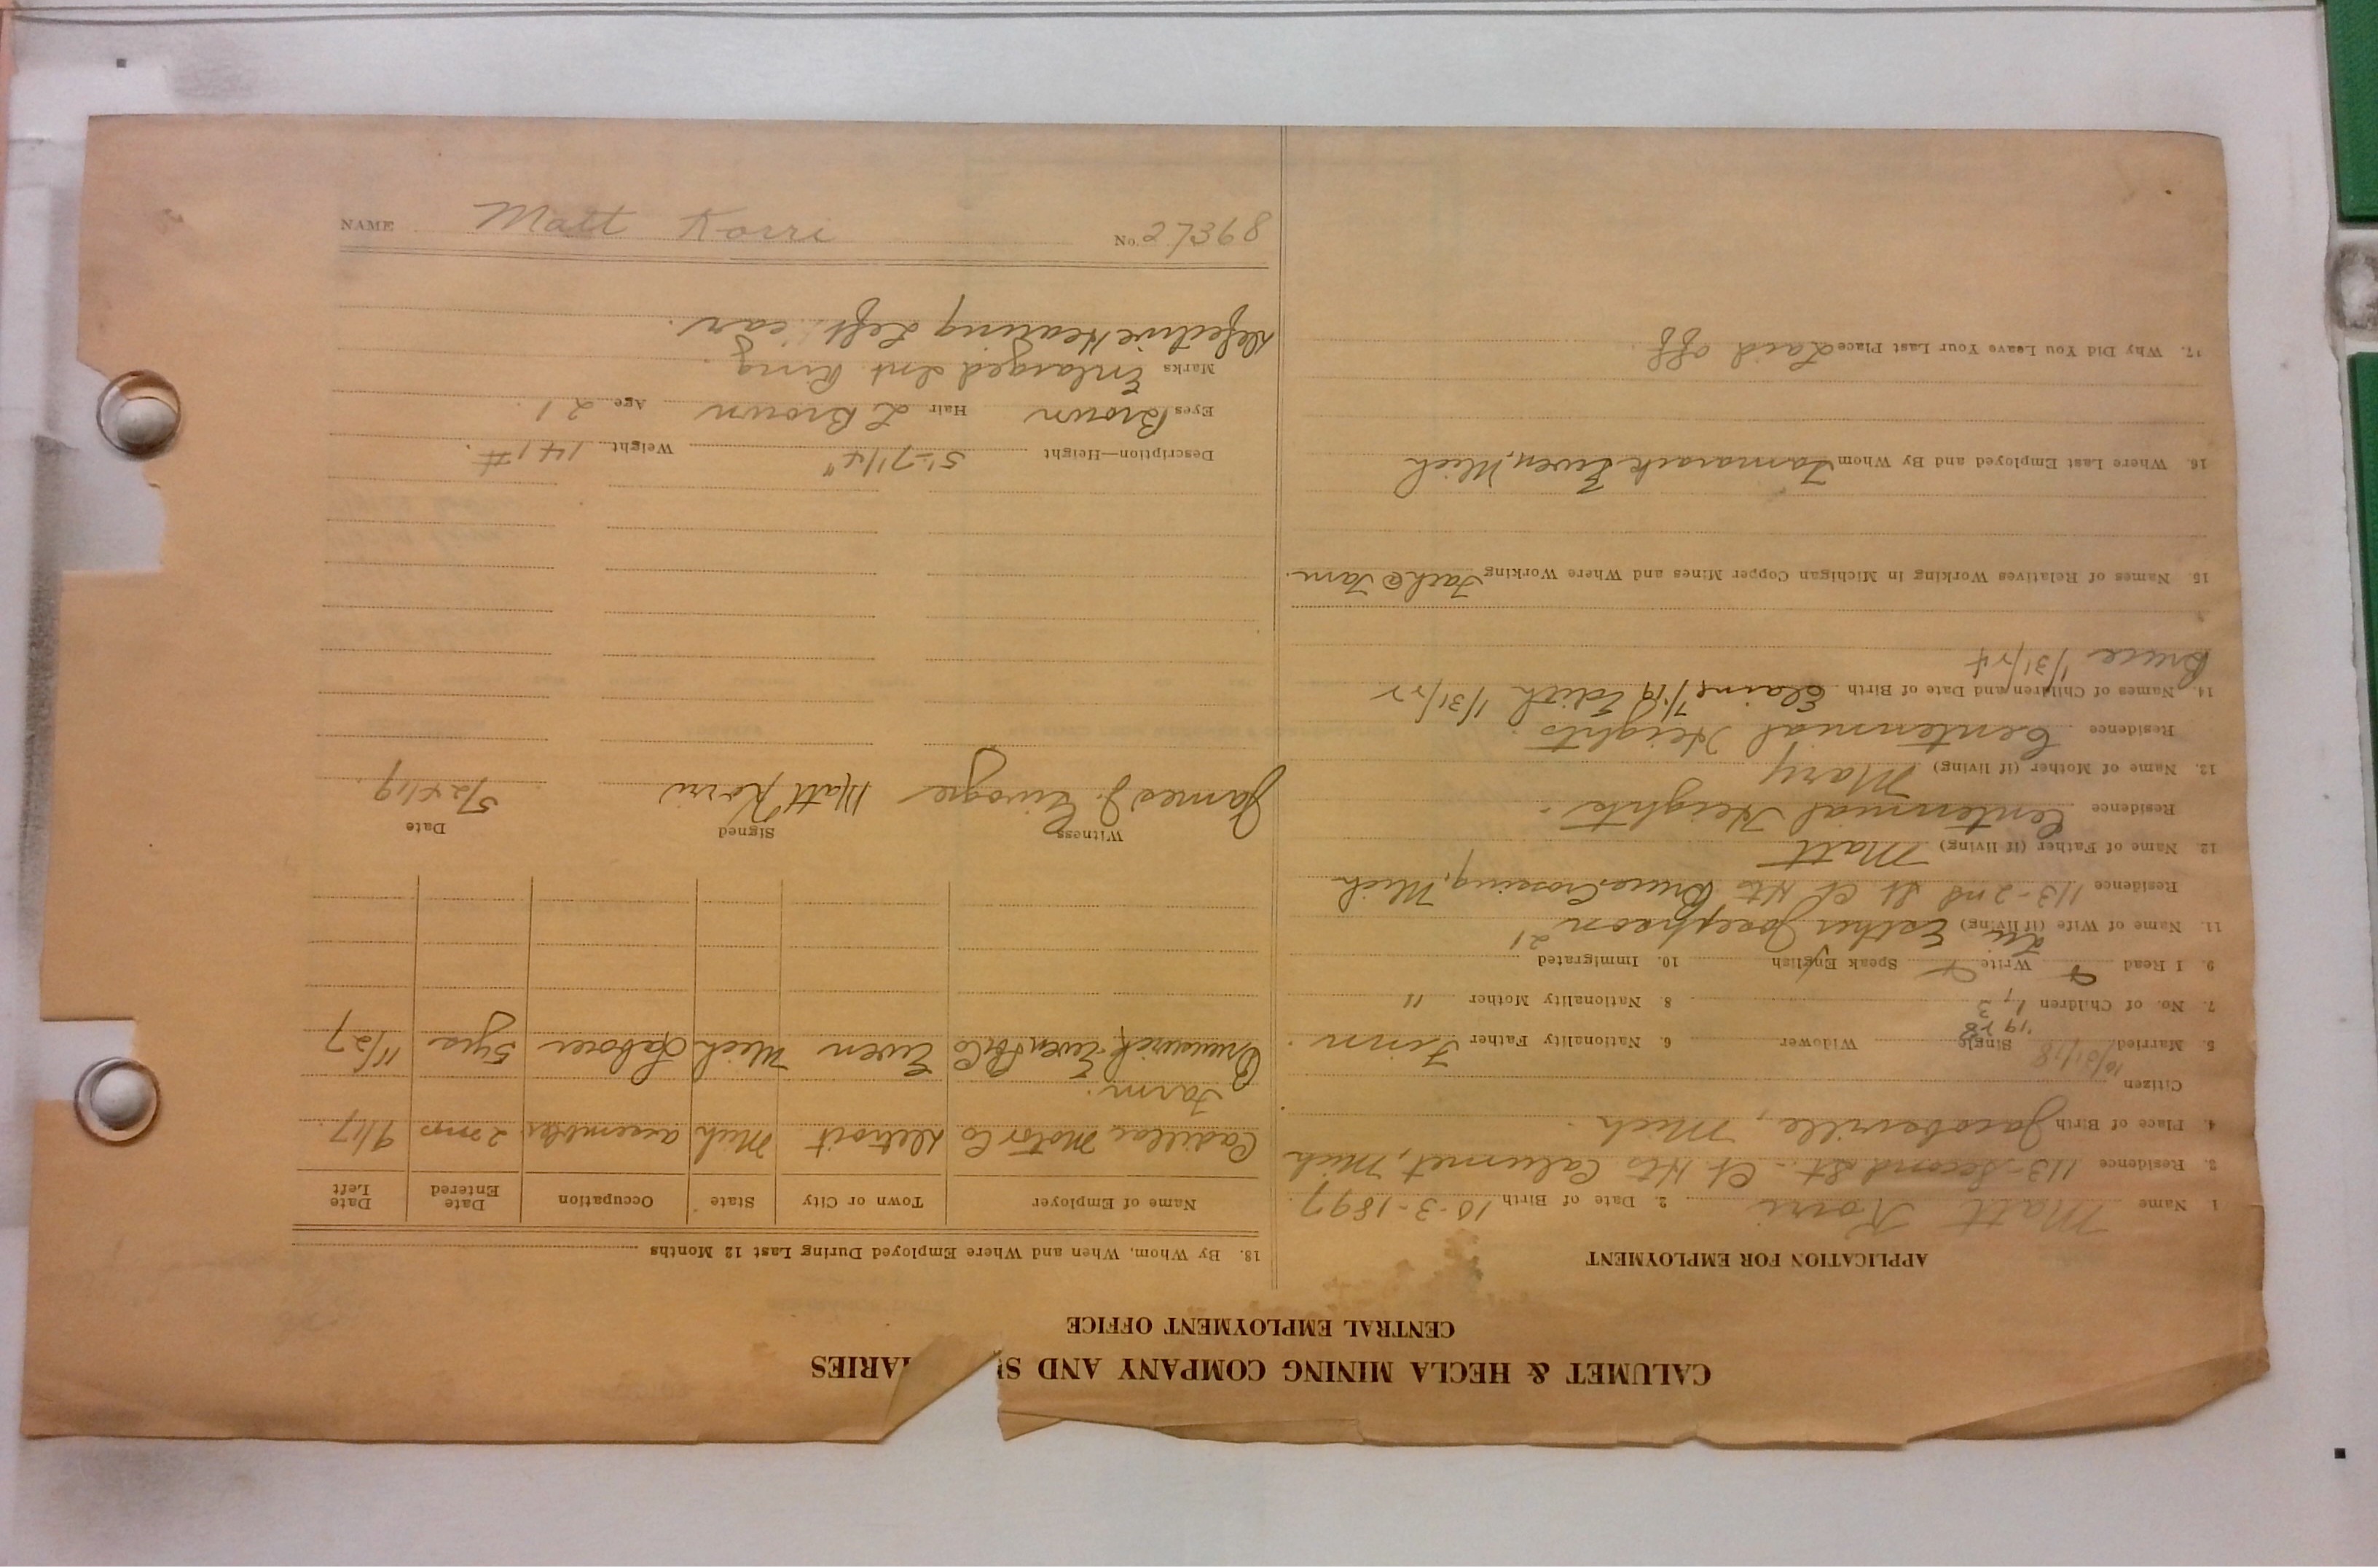 CALUMET & HECLA MINING COMPANY AND S ARIES
CENTRAL EMPLOYMENT OFFICE
APPLICATION FOR EMPLOYMENT
1 Name Matt Korri 2. Date of Birth 10-3-1897.
3. Residence 113-Second St.- Cl Hts Calumet, Mich
4. Place of Birth Jacobsville, Mich.
Citizen
5. Married 10/31/18 Single Widower 6. Nationality Father Finn.
1928
7. No. of Children 1 3 8. Nationality Mother "
9. I Read Write Speak English 10. Immigrated
21
11. Name of Wife (if living) Esther Josephson
Residence 113-2nd St Cl Hts Bruce Crossing, Mich
12. Name of Father (if living) Matt
Residence Centennial Heights.
13. Name of Mother (if living) Mary
Residence Centennial Heights.
14. Names of Children and Date of Birth Elaine 7/19 Edith 1/31/22
Bruce 1/31/24
15 Names of Relatives Working in Michigan Copper Mines and Where Working Fath @ Tam.
16. Where Last Employed and By Whom Tamarack Ewen, Mich
17. Why Did You Leave Your Last Place Laid off
18. By Whom, When and Where Employed During Last 12 Months
Name of Employer Town or City State Occupation Date Entered Date Left
Cadillac Motor Co Detroit Mich assembler 2 mos 9/17.
Farm.
Ewen Co Ewen Mich Laborer 5 yrs 11/27
Witness Signed Date
James J. Matt Korri 5/24/19.
Description—Height 5'-7 1/4" Weight 141#.
Eyes Brown Hair L Brown Age 21.
Marks Enlarged Int Ring.
Defective Hearing Left ear.
NAME Matt Korri No. 27368